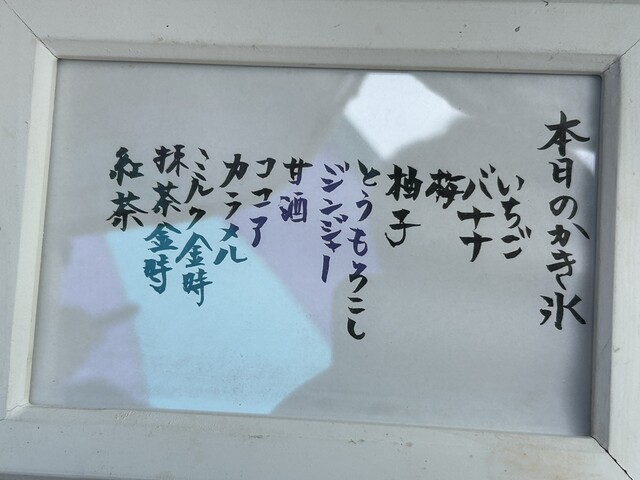 本日のかき氷
いちご
バナナ
梅
柚子
とうもろこし
ジンジャー
甘酒
ココア
カラメル
ミルク金時
抹茶金時
紅茶